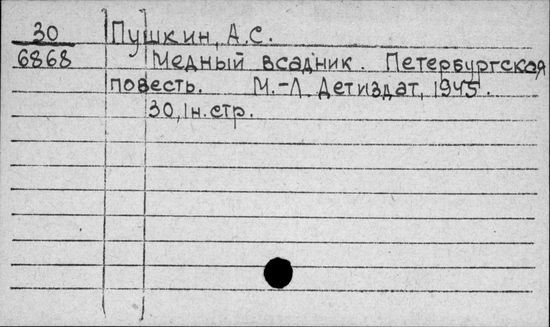 30 Пушкин, А.С.
6868 Медный всадник. Петербургская
повесть. М.-Л. Детиздат, 1945.
30, 1н.стр.